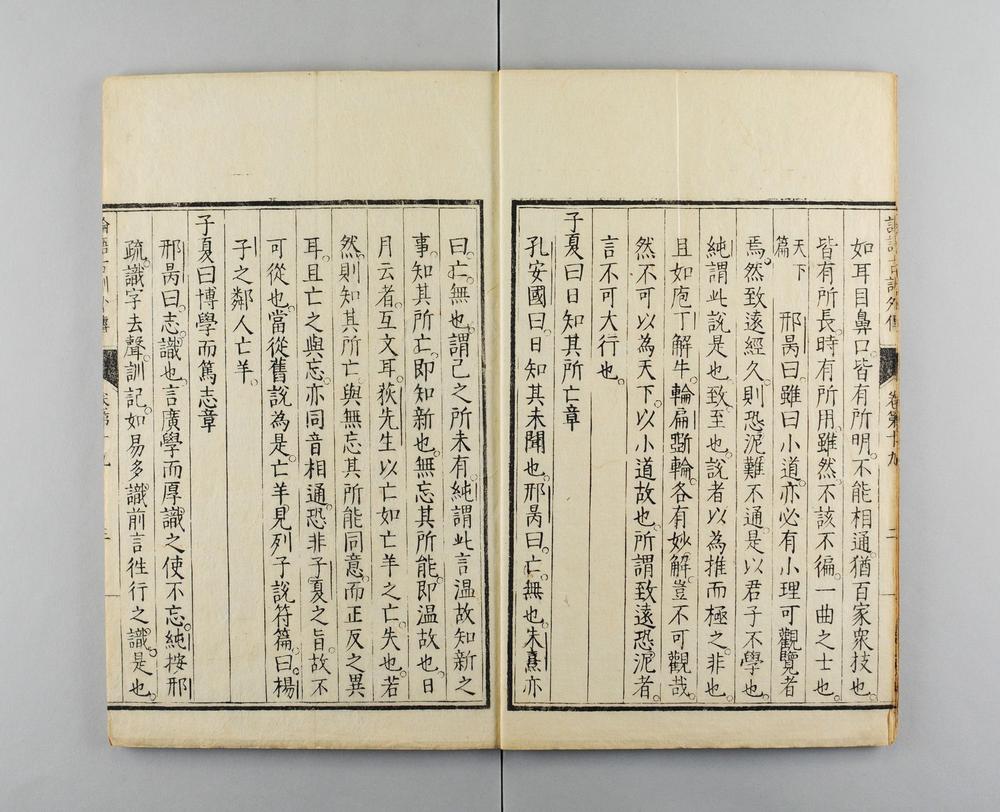 如耳目鼻口。皆有所明。不能相通。猶百家衆技也。
皆有所長。時有所用。雖然。不該不徧。一曲之士也。
天下篇 邢昺曰。雖曰小道。亦必有小理可觀覽者
焉。然致遠經久。則恐泥難不通。是以君子不學也。
純謂此說是也。致至也。說者以為推而極之。非也。
且如庖丁解牛。輪扁斲輪。各有妙解。豈不可觀哉。
然不可以為天下。以小道故也。所謂致遠恐泥者。
言不可大行也。
子夏曰日知其所亡章
孔安國曰。日知其未聞也。邢昺曰。亡。無也。朱熹亦
曰。亡。無也。謂己之所未有。純謂此言温故知新之
事。知其所亡。即知新也。無忘其所能。即温故也。日
月云者。互文耳。荻先生以亡如亡羊之亡。失也。若
然則知其所亡。與無忘其所能同意。而正反之異
耳。且亡之與忘。亦同音相通。恐非子夏之旨。故不
可從也。當從舊說為是。亡羊見列子說符篇。曰。楊
子之鄰人亡羊。
子夏曰博學而篤志章
邢昺曰。志。識也。言廣學而厚識之使不忘。純按邢
疏。識字去聲。訓記。如易多識前言往行之識。是也。
卷第十九
二